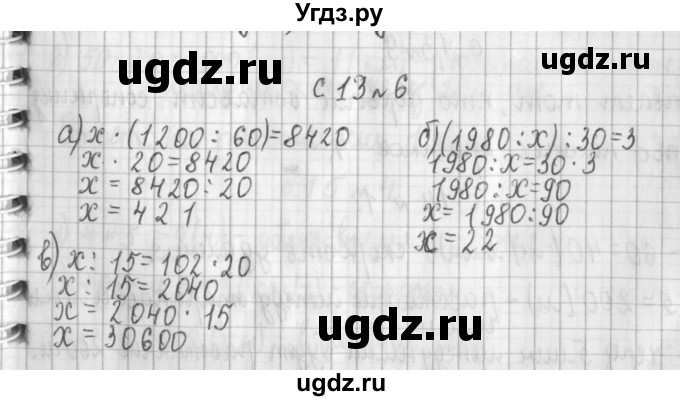 Угдз.ру
ugdz.ru ugdz.ru
с. 13 № 6
а) x · (1200 : 60) = 8420
x · 20 = 8420
x = 8420 : 20
x = 421
б) (1980 : x) : 30 = 3
1980 : x = 30 · 3
1980 : x = 90
x = 1980 : 90
x = 22
в) x : 15 = 102 · 20
x : 15 = 2040
x = 2040 · 15
x = 30600
ugdz.ru ugdz.ru
ugdz.ru